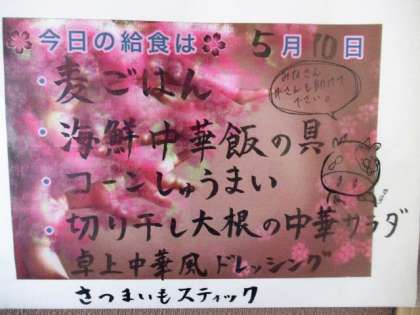 今日の給食は 5月10日
・麦ごはん
みなさん
・海鮮中華飯の具
・コーンしゅうまい
・切り干し大根の中華サラダ
卓上中華風ドレッシング
さつまいもスティック